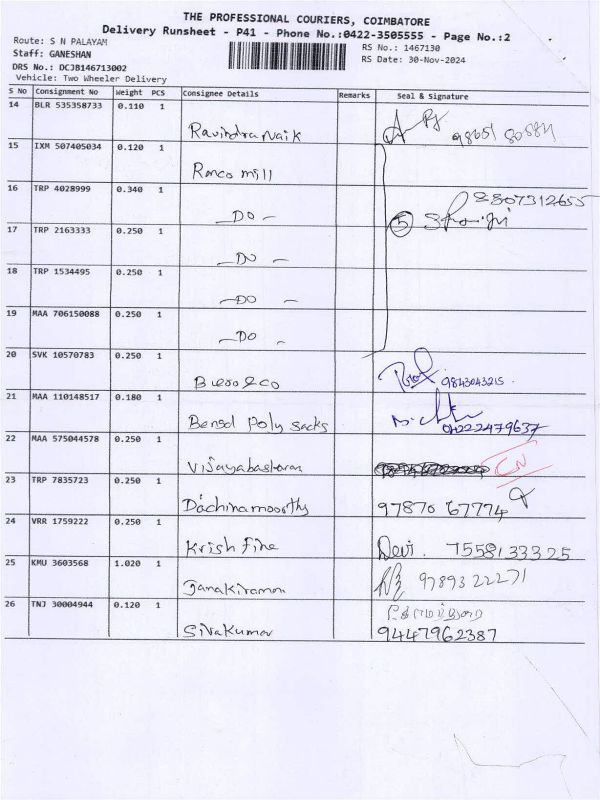 THE PROFESSIONAL COURIERS, COIMBATORE
Delivery Runsheet - P41 - Phone No.:0422-3505555 - Page No.:2
Route: S N PALAYAM
RS No.: 1467130
Staff: GANESHAN
RS Date: 30-Nov-2024
DRS No.: DCJB146713002
Vehicle: Two Wheeler Delivery
S No Consignment No Weight PCS Consignee Details Remarks Seal & Signature
14 BLR 535358733 0.110 1 Ravindra Naik
15 IXM 507405034 0.120 1 Ramco mill
16 TRP 4028999 0.340 1 -DO- 2807312655
17 TRP 2163333 0.250 1 -DO- 5
18 TRP 1534495 0.250 1 -DO-
19 MAA 706150088 0.250 1 -DO-
20 SVK 10570783 0.250 1 9843043215
21 MAA 110148517 0.180 1 Bensal Poly sacks
22 MAA 575044578 0.250 1 Vijayabaskaran CN
23 TRP 7835723 0.250 1 Dachinamoorthy 97870 67774
24 VRR 1759222 0.250 1 Krish fine Devi. 7558133325
25 KMU 3603568 1.020 1 Janakiraman 9789322271
26 TNJ 30004944 0.120 1 Sivakumar 9447962387